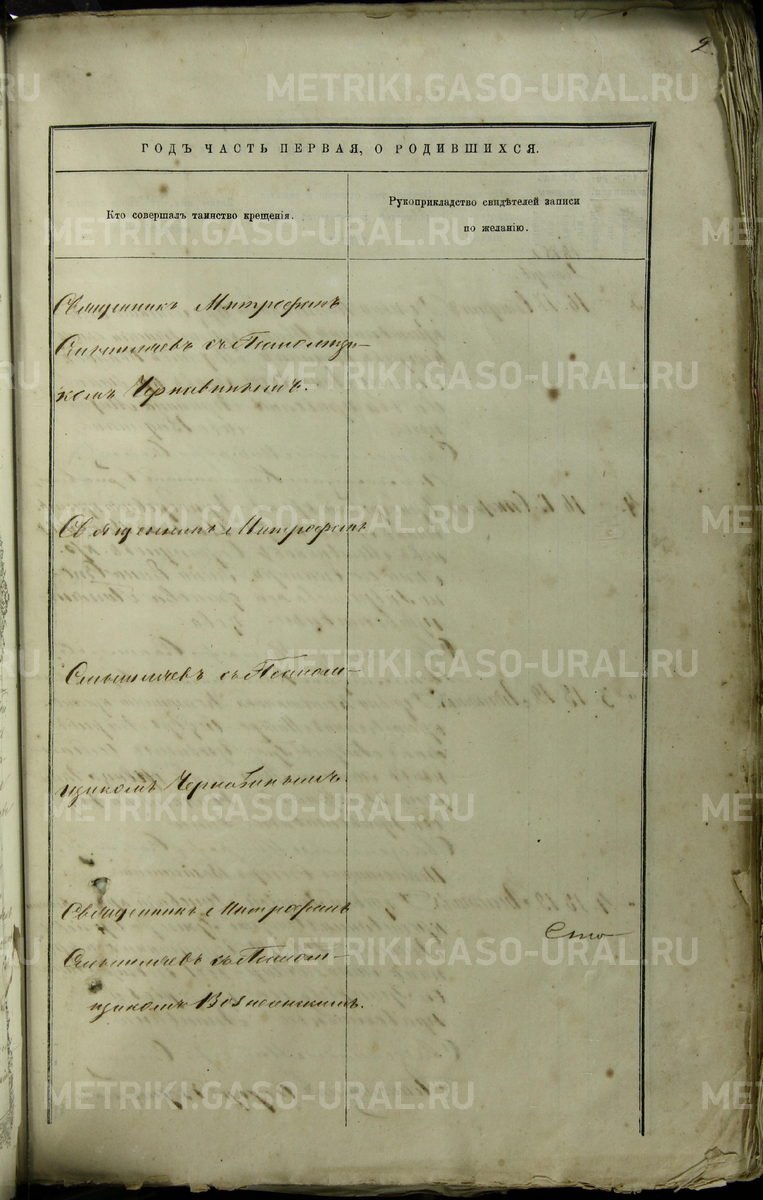 2
METRIKI.GASO-URAL.RU
ГОДЪ ЧАСТЬ ПЕРВАЯ, О РОДИВШИХСЯ.
Кто совершалъ таинство крещенія.
Рукоприкладство свидѣтелей записи
по желанію.
METRIKI.GASO-URAL.RU
Священникъ Митрофанъ
Смышляевъ съ Псаломщи-
METRIKI.GASO-URAL.RU
комъ Чернавинымъ.
Священникъ Митрофанъ
METRIKI.GASO-URAL.RU
METRIKI.GASO-URAL.RU
Смышляевъ съ Псалом-
щикомъ Чернавинымъ.
METRIKI.GASO-URAL.RU
Священникъ Митрофанъ
Сто
METRIKI.GASO-URAL.RU
Смышляевъ съ Псалом-
щикомъ Вознесенскимъ.
METRIKI.GASO-URAL.RU